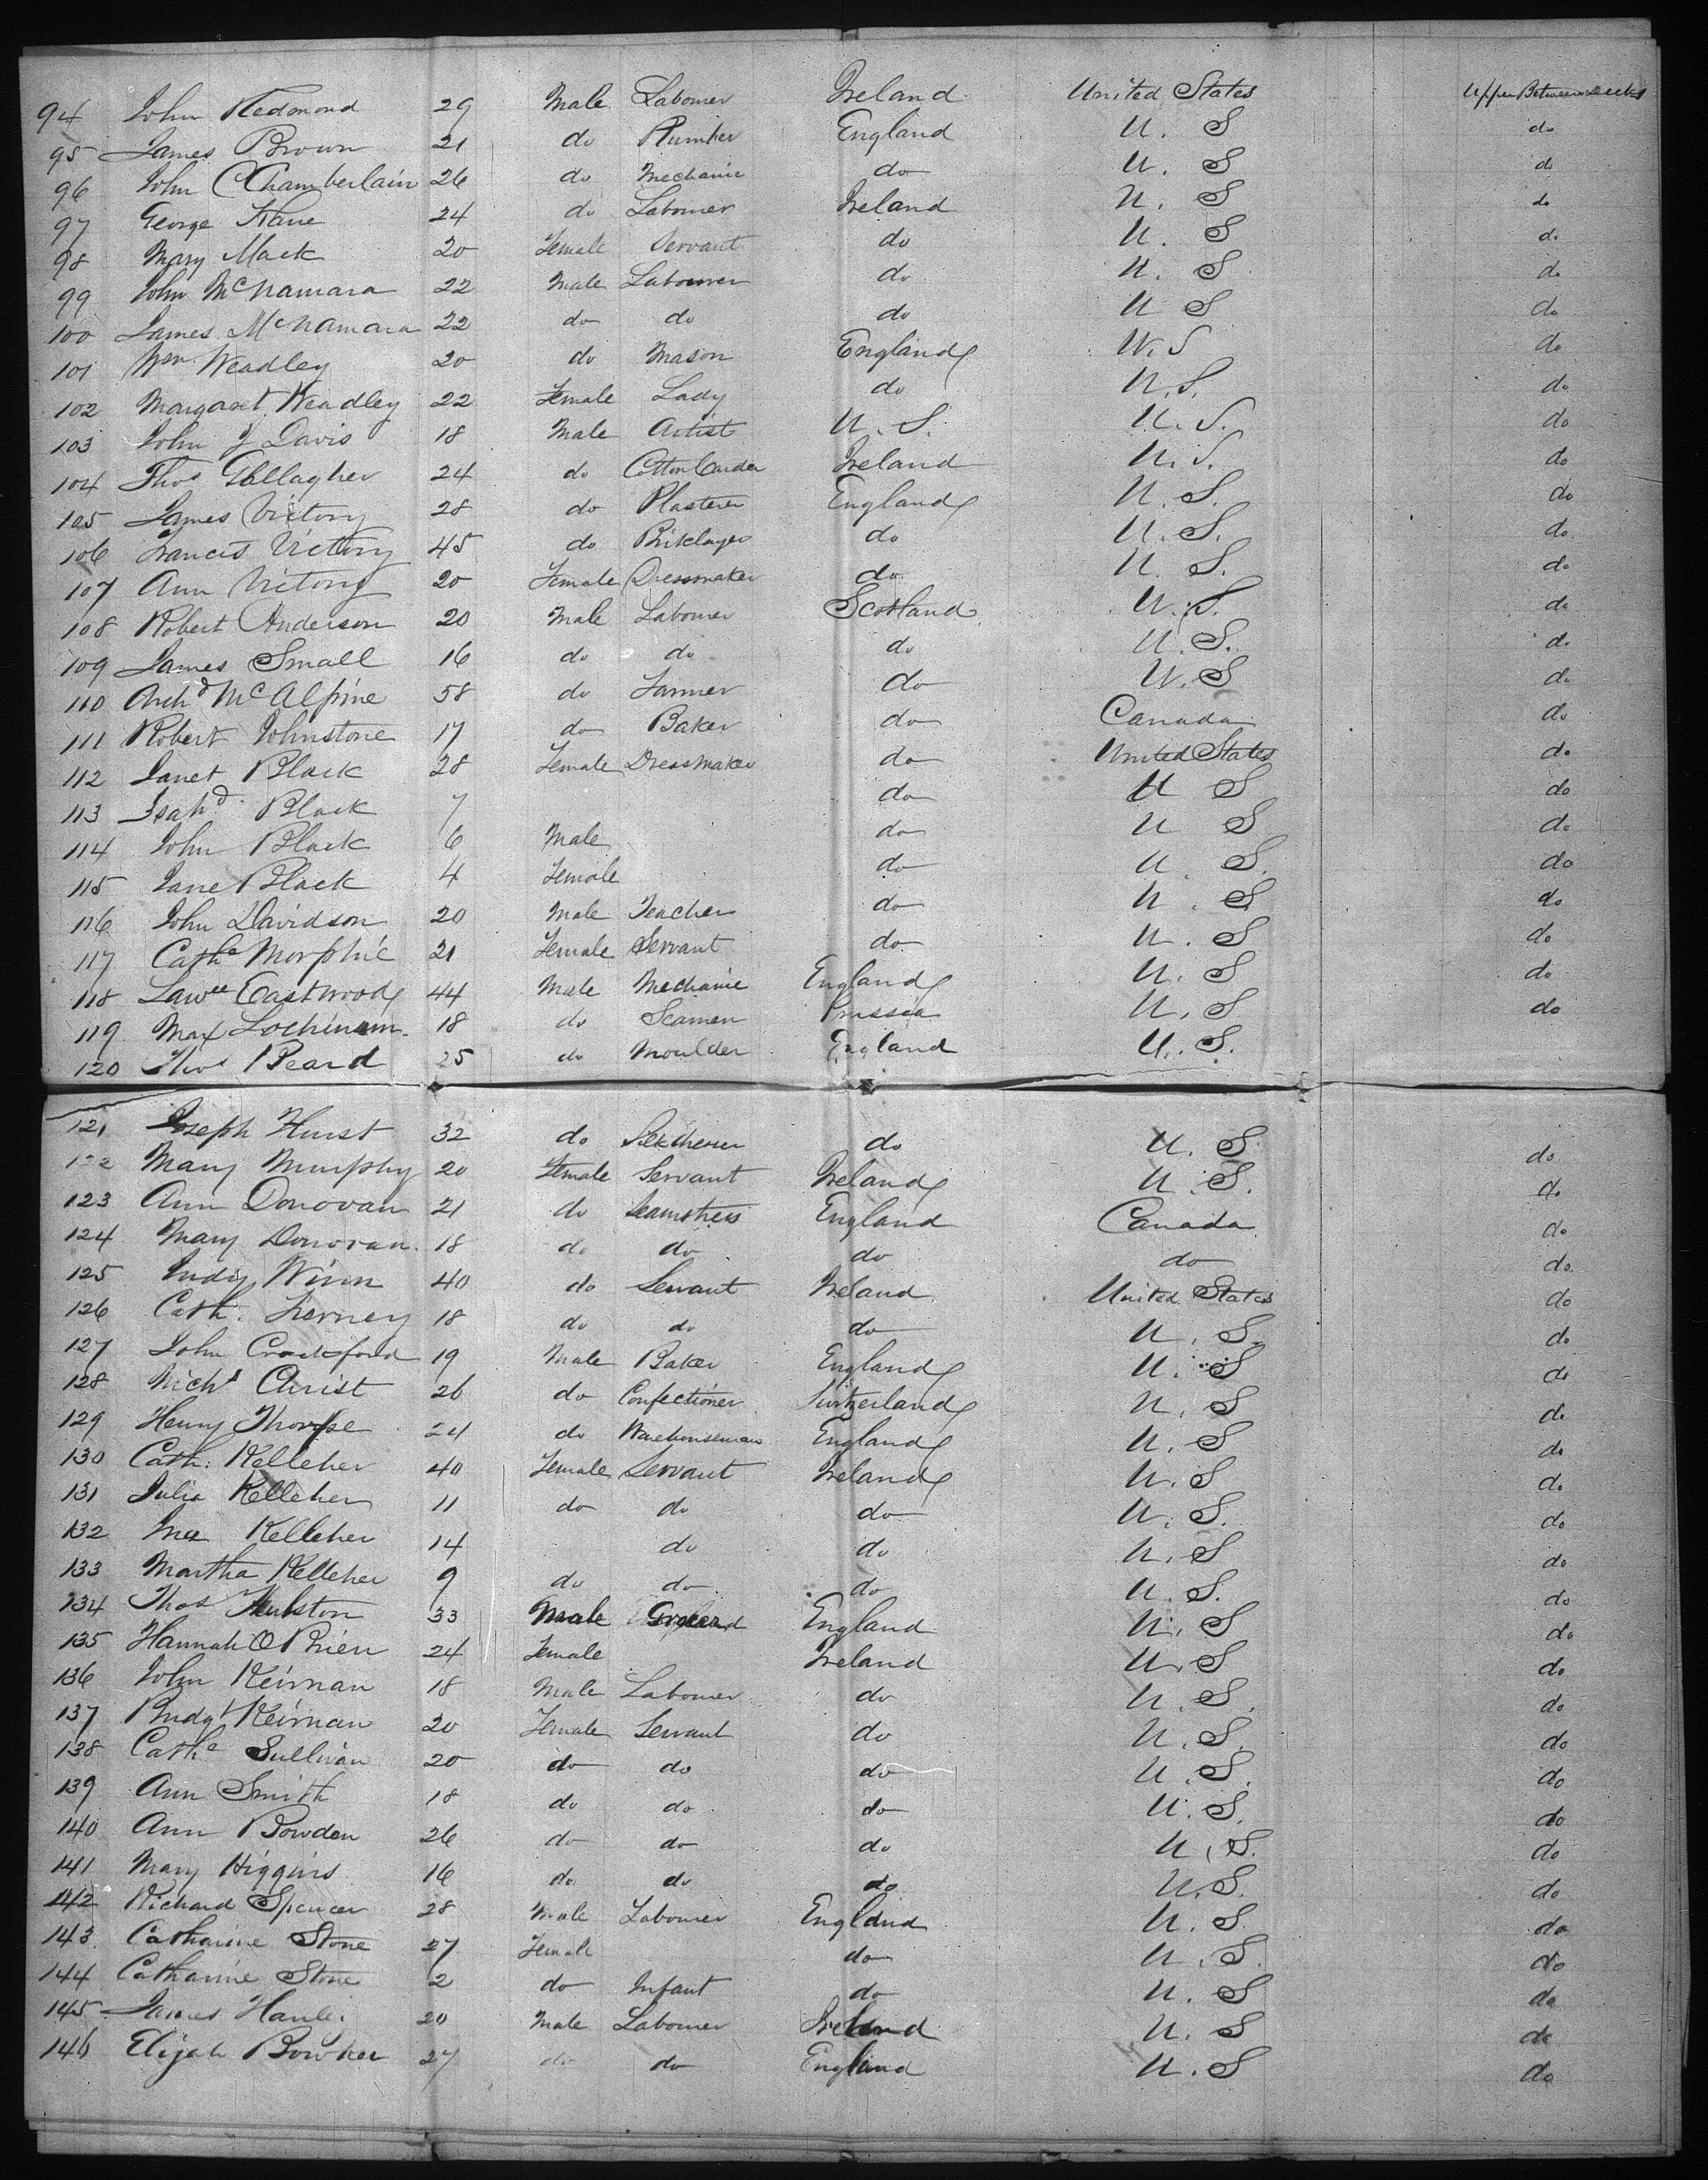 94 John Redmond 29 Male Labourer Ireland United States Upper Between decks
95 James Brown 21 do Plumber England U. S do
96 John C Chamberlain 26 do Mechanic do U. S do
97 George Kane 24 do Labourer Ireland U. S do
98 Mary Mack 20 Female Servant do U. S do
99 John McNamara 22 Male Labourer do U. S do
100 James McNamara 22 do do do U S do
101 Wm Weadley 20 do Mason England U. S do
102 Margaret Weadley 22 Female Lady do U. S. do
103 John J Davis 18 Male Artist U. S. U. S. do
104 Thos Gallagher 24 do Cotton Carder Ireland U. S. do
105 James Victory 28 do Plasterer England U. S. do
106 Francis Victory 45 do Briklayer do U. S. do
107 Ann Victory 20 Female Dressmaker do U. S. do
108 Robert Anderson 20 Male Labourer Scotland U. S. do
109 James Small 16 do do do U. S. do
110 Archd McAlpine 58 do Farmer do U. S do
111 Robert Johnstone 17 do Baker do Canada do
112 Janet Black 28 Female Dressmaker do United States do
113 Isahd Black 7 do U S do
114 John Black 6 Male do U S do
115 Jane Black 4 Female do U. S. do
116 John Davidson 20 Male Teacher do U. S do
117 Cathe Morphie 21 Female Servant do U. S do
118 Lawce Eastwood 44 Male Mechanic England U. S do
119 Max 18 do Seaman Prussia U. S do
120 Thos Beard 25 do Moulder England U. S.
121 Joseph Hurst 32 do do U. S do
122 Mary Murphy 20 Female Servant Ireland U. S. do
123 Ann Donovan 21 do Seamstress England Canada do
124 Mary Donovan 18 do do do do do
125 Judy Winn 40 do Servant Ireland United States do
126 Cath. Tierney 18 do do do U. S. do
127 John Crockford 19 Male Baker England U. S do
128 Nichs Christ 26 do Confectioner Switzerland U. S do
129 Henry Thorpe 24 do Warehouseman England U. S do
130 Cath: Kelleher 40 Female Servant Ireland U. S do
131 Julia Kelleher 11 do do do U. S. do
132 Kelleher 14 do do U. S do
133 Martha Kelleher 9 do do do U. S. do
134 Thos 33 Male England U. S do
135 Hannah O Brien 24 Female Ireland U. S do
136 John Keirnan 18 Male Labourer do U. S. do
137 Bridgt Keirnan 20 Female Servant do U. S. do
138 Cathe Sullivan 20 do do do U. S. do
139 Ann Smith 18 do do do U. S. do
140 Ann Bowden 26 do do do U. S. do
141 Mary Higgins 16 do do do U. S. do
142 Richard Spencer 28 Male Labourer England U. S. do
143 Catharine Stone 27 Female do U. S. do
144 Catharine Stone 2 do Infant do U. S do
145 James 20 Male Labourer Ireland U. S do
146 Elijah Bowker 27 do do England U. S do